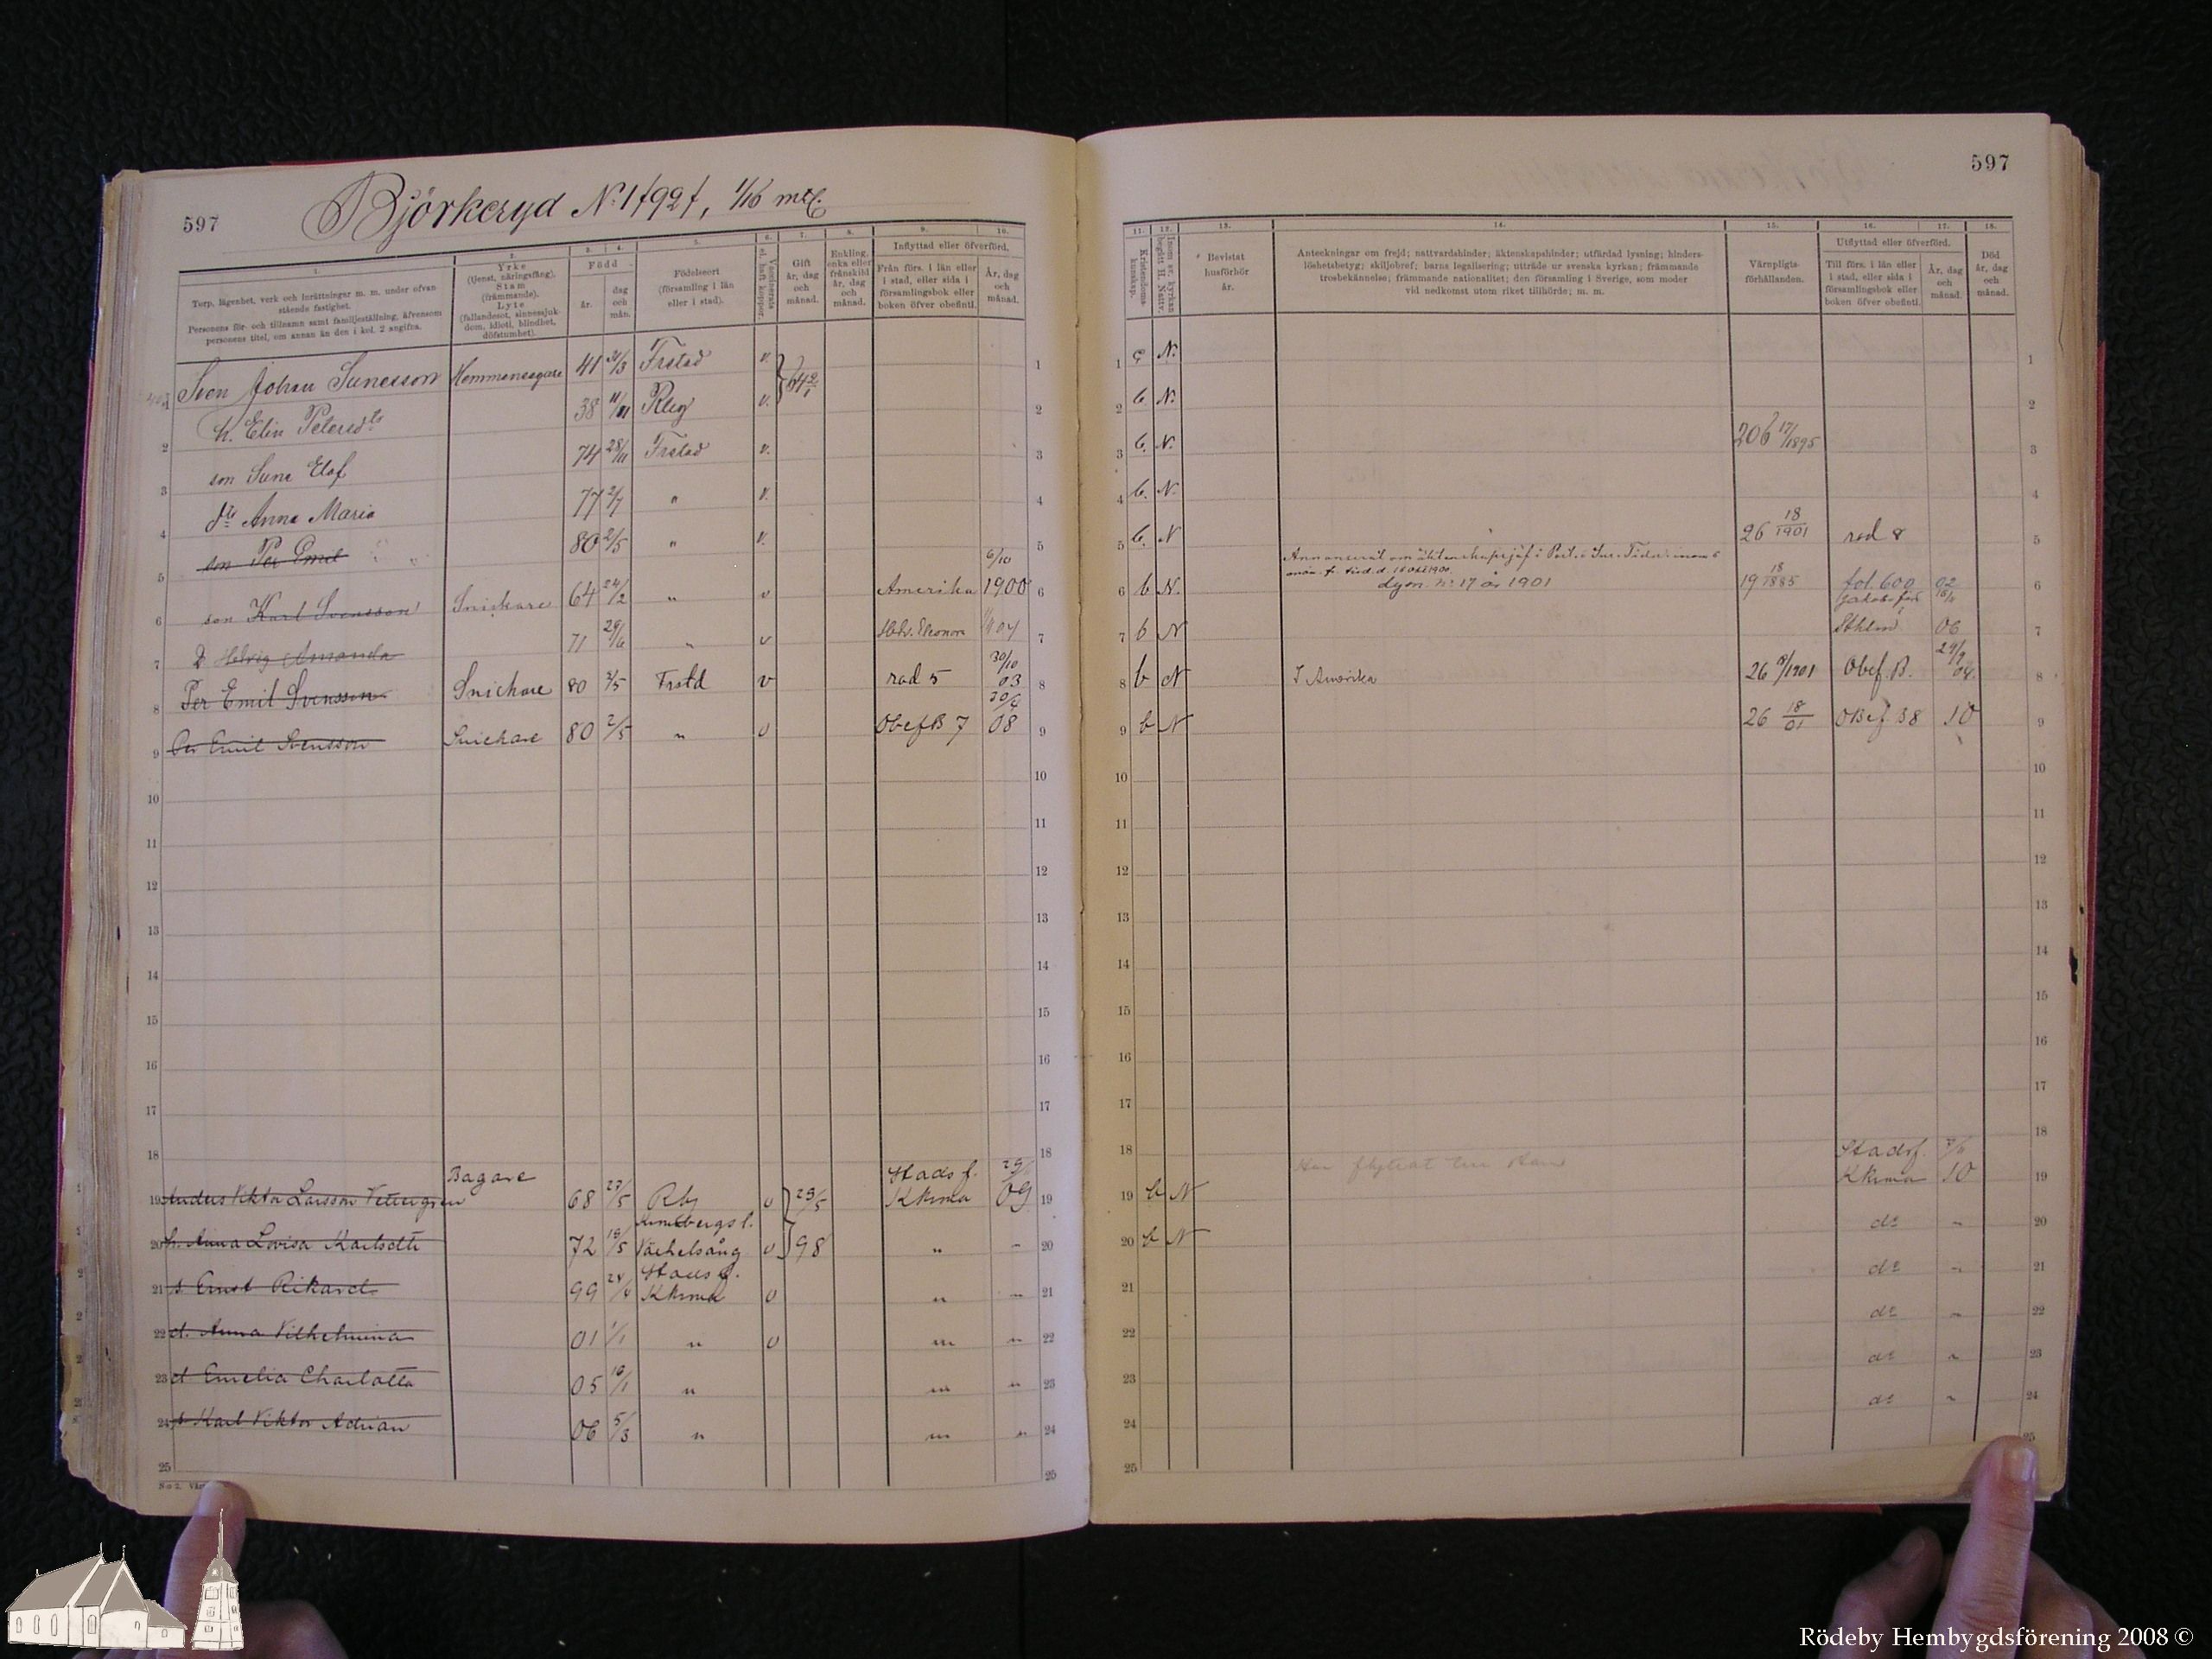 597
Björkeryd No 1/92/, 1/16 mtl.
1.
Torp, lägenhet, verk och inrättningar m. m. under ofvan
stående fastighet.
Personens för- och tillnamn samt familjeställning, äfvensom
personens titel, om annan än den i kol. 2 angifna.
2.
Yrke
(tjenst, näringsfång).
Stam
(främmande).
Lyte
(fallandesot, sinnessjuk-
dom, idioti, blindhet,
döfstumhet).
3. 4.
Född
år.
dag
och
mån.
5.
Födelseort
(församling i län
eller i stad).
6.
Vaccinerats
el. haft koppor.
7.
Gift
år, dag
och
månad.
8.
Enkling,
enka eller
frånskild
år, dag
och
månad.
9. 10.
Inflyttad eller öfverförd,
Från förs. i län eller
i stad, eller sida i
församlingsbok eller
boken öfver obefintl.
År, dag
och
månad.
1 Sven Johan Sunesson Hemmansegare 41 Frstad v. 1
2 h. Elin Petersdtr 38 Rby v. 2
3 son Sune Elof 74 28/11 Frstad v. 3
4 dtr Anna Maria 77 2/7 " v. 4
5 son Per Emil 80 2/5 " v. 5
6 son Karl Svensson Snickare 64 24/2 " v Amerika 6/10 1900 6
7 D Hedvig Amanda 71 29/6 " v 7
8 Per Emil Svensson Snickare 80 2/5 Frstd v rad 5 30/10 03 8
9 Per Emil Svensson Snickare 80 2/5 " v Obef B 7 08 9
10 10
11 11
12 12
13 13
14 14
15 15
16 16
17 17
18 18
19 Anders Viktor Larsson Vettergren Bagare 68 23/5 Rby v 29/5 Stads f. Kkrona 09 19
20 h. Anna Lovisa Karlsdtr 72 19/5 v 98 " 20
21 s. Ernst Rikard 99 24/4 Stads f. Kkrona v " 21
22 d. Anna Vilhelmina 01 1/1 " v " " 22
23 d Emelia Charlotta 05 " " " 23
24 s Karl Viktor Adrian 06 5/3 " " " 24
25 25
No 2.
597
11.
Kristendoms-
kunskap.
12.
Inom sv. kyrkan
begått H. Nattv.
13.
Bevistat
husförhör
år.
14.
Anteckningar om frejd; nattvardshinder; äktenskapshinder; utfärdad lysning; hinders-
löshetsbetyg; skiljobref; barns legalisering; utträde ur svenska kyrkan; främmande
trosbekännelse; främmande nationalitet; den församling i Sverige, som moder
vid nedkomst utom riket tillhörde; m. m.
15.
Värnpligts-
förhållanden.
16. 17.
Utflyttad eller öfverförd.
Till förs. i län eller
i stad, eller sida i
församlingsbok eller
boken öfver obefintl.
År, dag
och
månad.
18.
Död
år, dag
och
månad.
1 N. 1
2 b. N. 2
3 b. N. 206 17/1895 3
4 b. N. 4
5 b. N 26 18/1901 rad 8 5
Annonserat om
6 b N. dgen. No 17 år 1901 19 18/1885 fol. 600 02 6
7 b N Sthlm 06 7
8 b N I Amerika 26 18/1901 Obef. B. 04. 8
9 b N 26 18/01 OBef B 8 10 9
10 10
11 11
12 12
13 13
14 14
15 15
16 16
17 17
18 18
19 b N Stadsf. Kkrona 10 19
20 b N do " 20
21 do " 21
22 do " 22
23 do " 23
24 do " 24
25 25
Rödeby Hembygdsförening 2008 ©